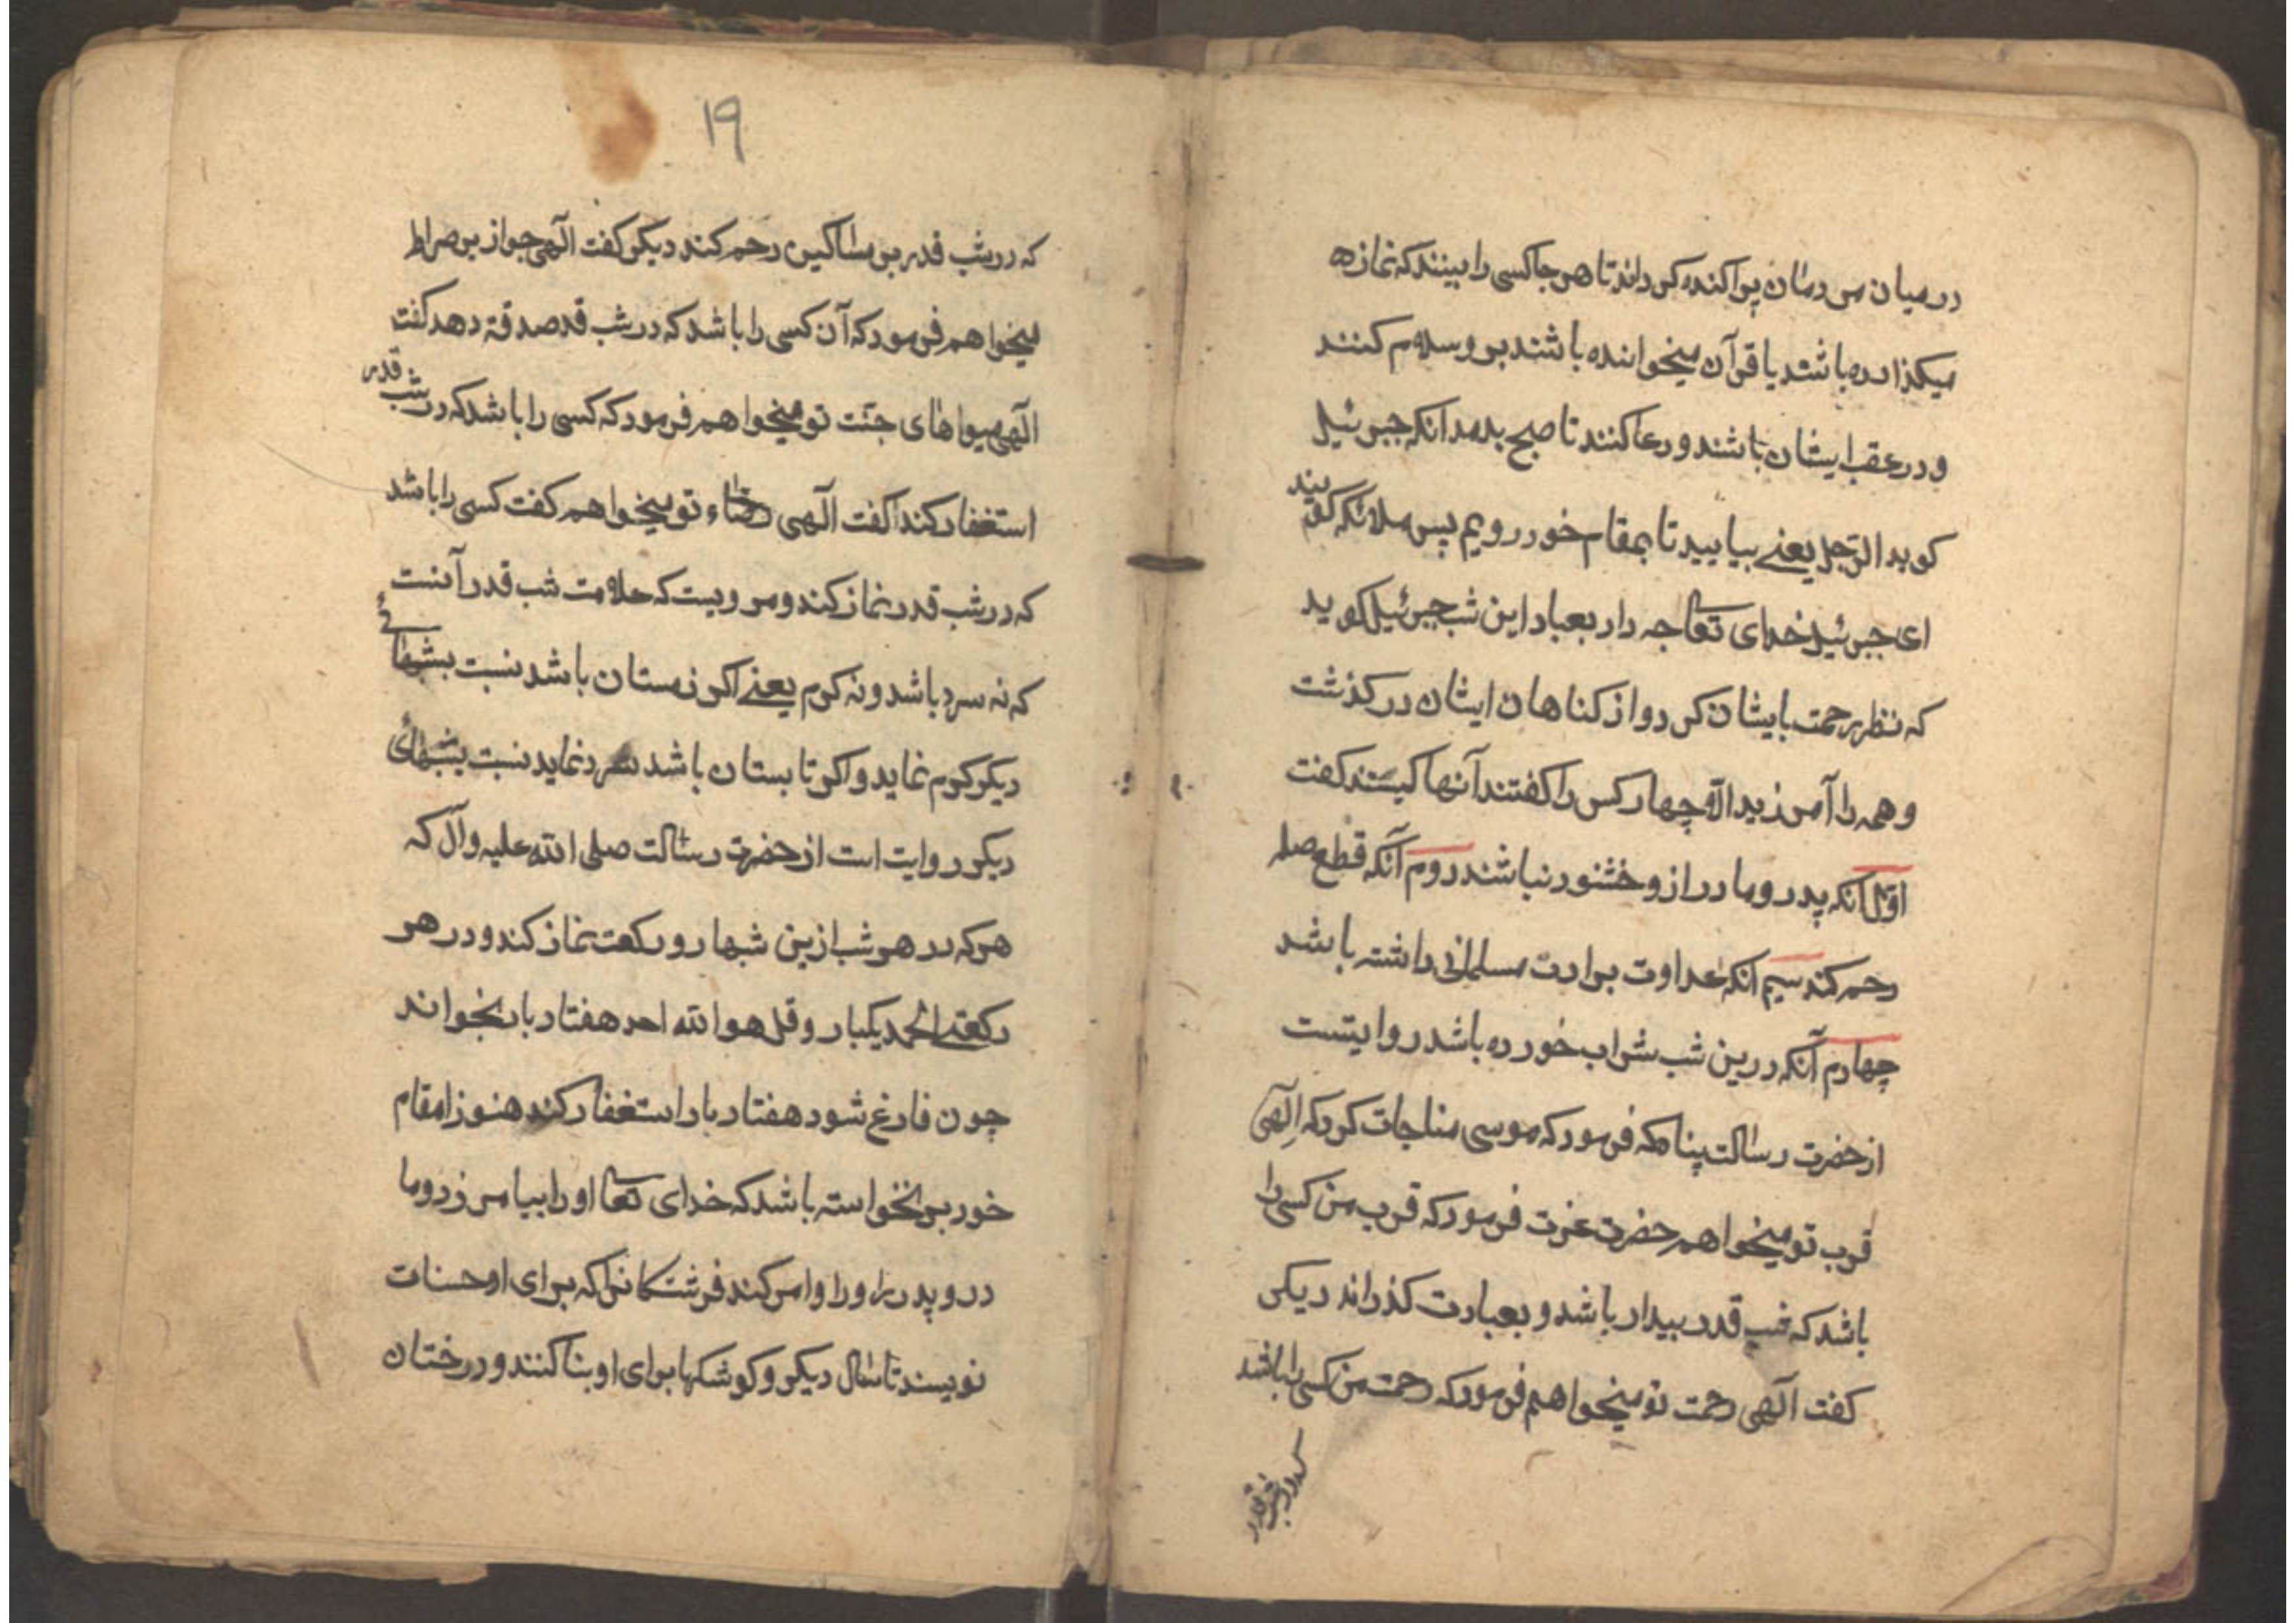 در میان مردمان پراکنده کرداند تا هر جا کسی را بینند که نمازه
میکذارده باشد یا قرآن میخوانده باشند برو سلام کنند
و در عقب ایشان باشند و دعا کنند تا صبح بدمد انکه جبرئیل
کوید الرّحیل یعنے بیایید تا بمقام خود رویم پس ملائکه کویند
ای جبرئیل خدای تعا چه داد بعباد این شب جبرئیل کوید
که نظر رحمت بایشان کرد و از کناهان ایشان در کذشت
و همه را آمرزید الّا چهار کس را کفتند آنها کیستند کفت
اوّل آنکه پدر و مادر از و خشنود نباشند دوم آنکه قطع صله
رحم کند سیم انکه عداوت برادرت مسلمانی داشته باشد
چهارم آنکه درین شب شراب خورده باشد روایتست
از حضرت رسالت پناه که فرمود که موسی مناجات کرد که اِلٓهی
قرب تو میخواهم حضرت عزت فرمود که قرب من کسی را
باشد که شب قدر بیدار باشد و بعبادت کذراند دیکر
کفت آلهی رحمت تو میخواهم فرمود که رحمت من کسی را باشد
که در شب قدر
۱۹
که در شب قدر بر مساکین رحم کند دیکر کفت آلهی جواز بر صراط
میخواهم فرمود که آن کسی را باشد که در شب قد صدقة دهد کفت
آلهی میواهای جنّت تو میخواهم فرمود که کسی را باشد که در شب قدر
استغفار کند کفت آلهی رضاء تو میخواهم کفت کسی را باشد
که در شب قدر نماز کند و مرویست که علامت شب قدر آنست
که نه سرد باشد و نه کرم یعنے اکر زمستان باشد نسبت بشبهائے
دیکر کرم نماید و اکر تابستان باشد سرد نماید نسبت بشبهائی
دیکر روایت است از حضرت رسالت صلی الله علیه وآل که
هر که در هر شب ازین شبها دو رکعت نماز کند و در هر
رکعتے الحمد یکبار و قل هو الله احد هفتاد بار بخواند
چون فارغ شود هفتاد بار استغفار کند هنوز از مقام
خود بر نخواسته باشد که خدای تعا او را بیامرزد و ما
در و پدر او را و امر کند فرشتکانرا که برای او حسنات
نویسند تا سال دیکر و کوشکها برای او بنا کنند و درختان